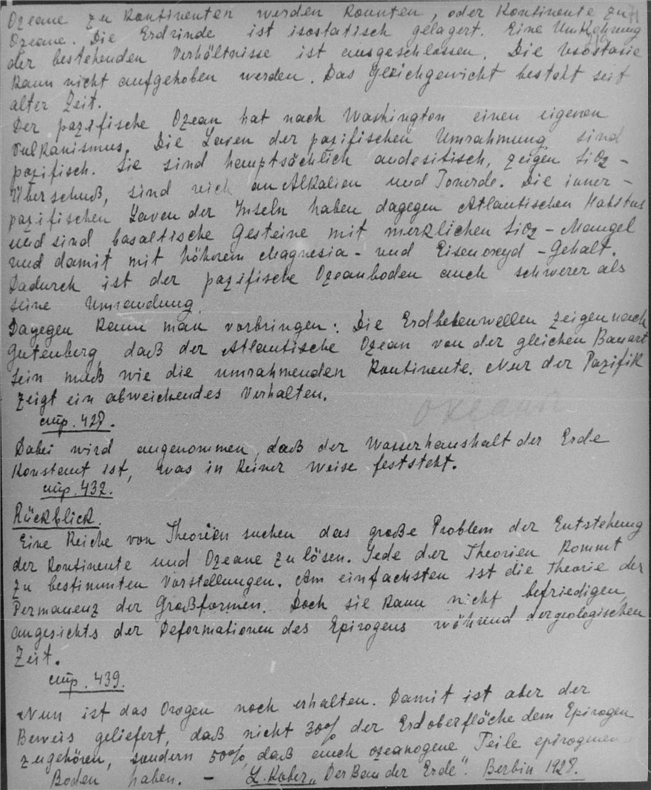 Ozeane zu Kontinenten werden konnten, oder Kontinente zu
Ozeane. Die Erdrinde ist isostatisch gelagert. Eine Umkehrung
der bestehenden Verhältnisse ist ausgeschlossen. Die Isostasie
kann nicht aufgehoben werden. Das Gleichgewicht besteht seit
alter Zeit.
Der pazifische Ozean hat nach Washington einen eigenen
Vulkanismus. Die Laven der pazifischen Umrahmung sind
pazifisch. Sie sind hauptsächlich andesitisch, zeigen SiO2-
Überschuß, sind reich an Alkalien und Tonerde. Die inner-
pazifischen Laven der Inseln haben dagegen Atlantischen Habitus
und sind basaltische Gesteine mit merklichen SiO2-Mangel
und damit mit höherem Magnesia- und Eisenoxyd-Gehalt.
Dadurch ist der pazifische Ozeanboden auch schwerer als
seine Umrandung.
Dagegen kann man vorbringen: Die Erdbebenwellen zeigen nach
Gutenberg, daß der Atlantische Ozean von der gleichen Bauart
sein muß wie die umrahmenden Kontinente. Nur der Pazifik
zeigt ein abweichendes Verhalten.
Океани
стр. 429.
Dabei wird angenommen, daß der Wasserhaushalt der Erde
konstant ist, was in keiner Weise feststeht.
стр. 432.
Rückblick.
Eine Reihe von Theorien suchen das große Problem der Entstehung
der Kontinente und Ozeane zu lösen. Jede der Theorien kommt
zu bestimmten Vorstellungen. Am einfachsten ist die Theorie der
Permanenz der Großformen. Doch sie kann nicht befriedigen,
angesichts der Deformationen des Epirogens während der geologischen
Zeit.
стр. 439.
Nun ist das Orogen noch erhalten. Damit ist aber der
Beweis geliefert, daß nicht 30% der Erdoberfläche dem Epirogen
zugehören, sondern 50%, daß auch ozeanogene Teile epirogenen
Boden haben. – L. Kober „Der Bau der Erde". Berlin 1928.